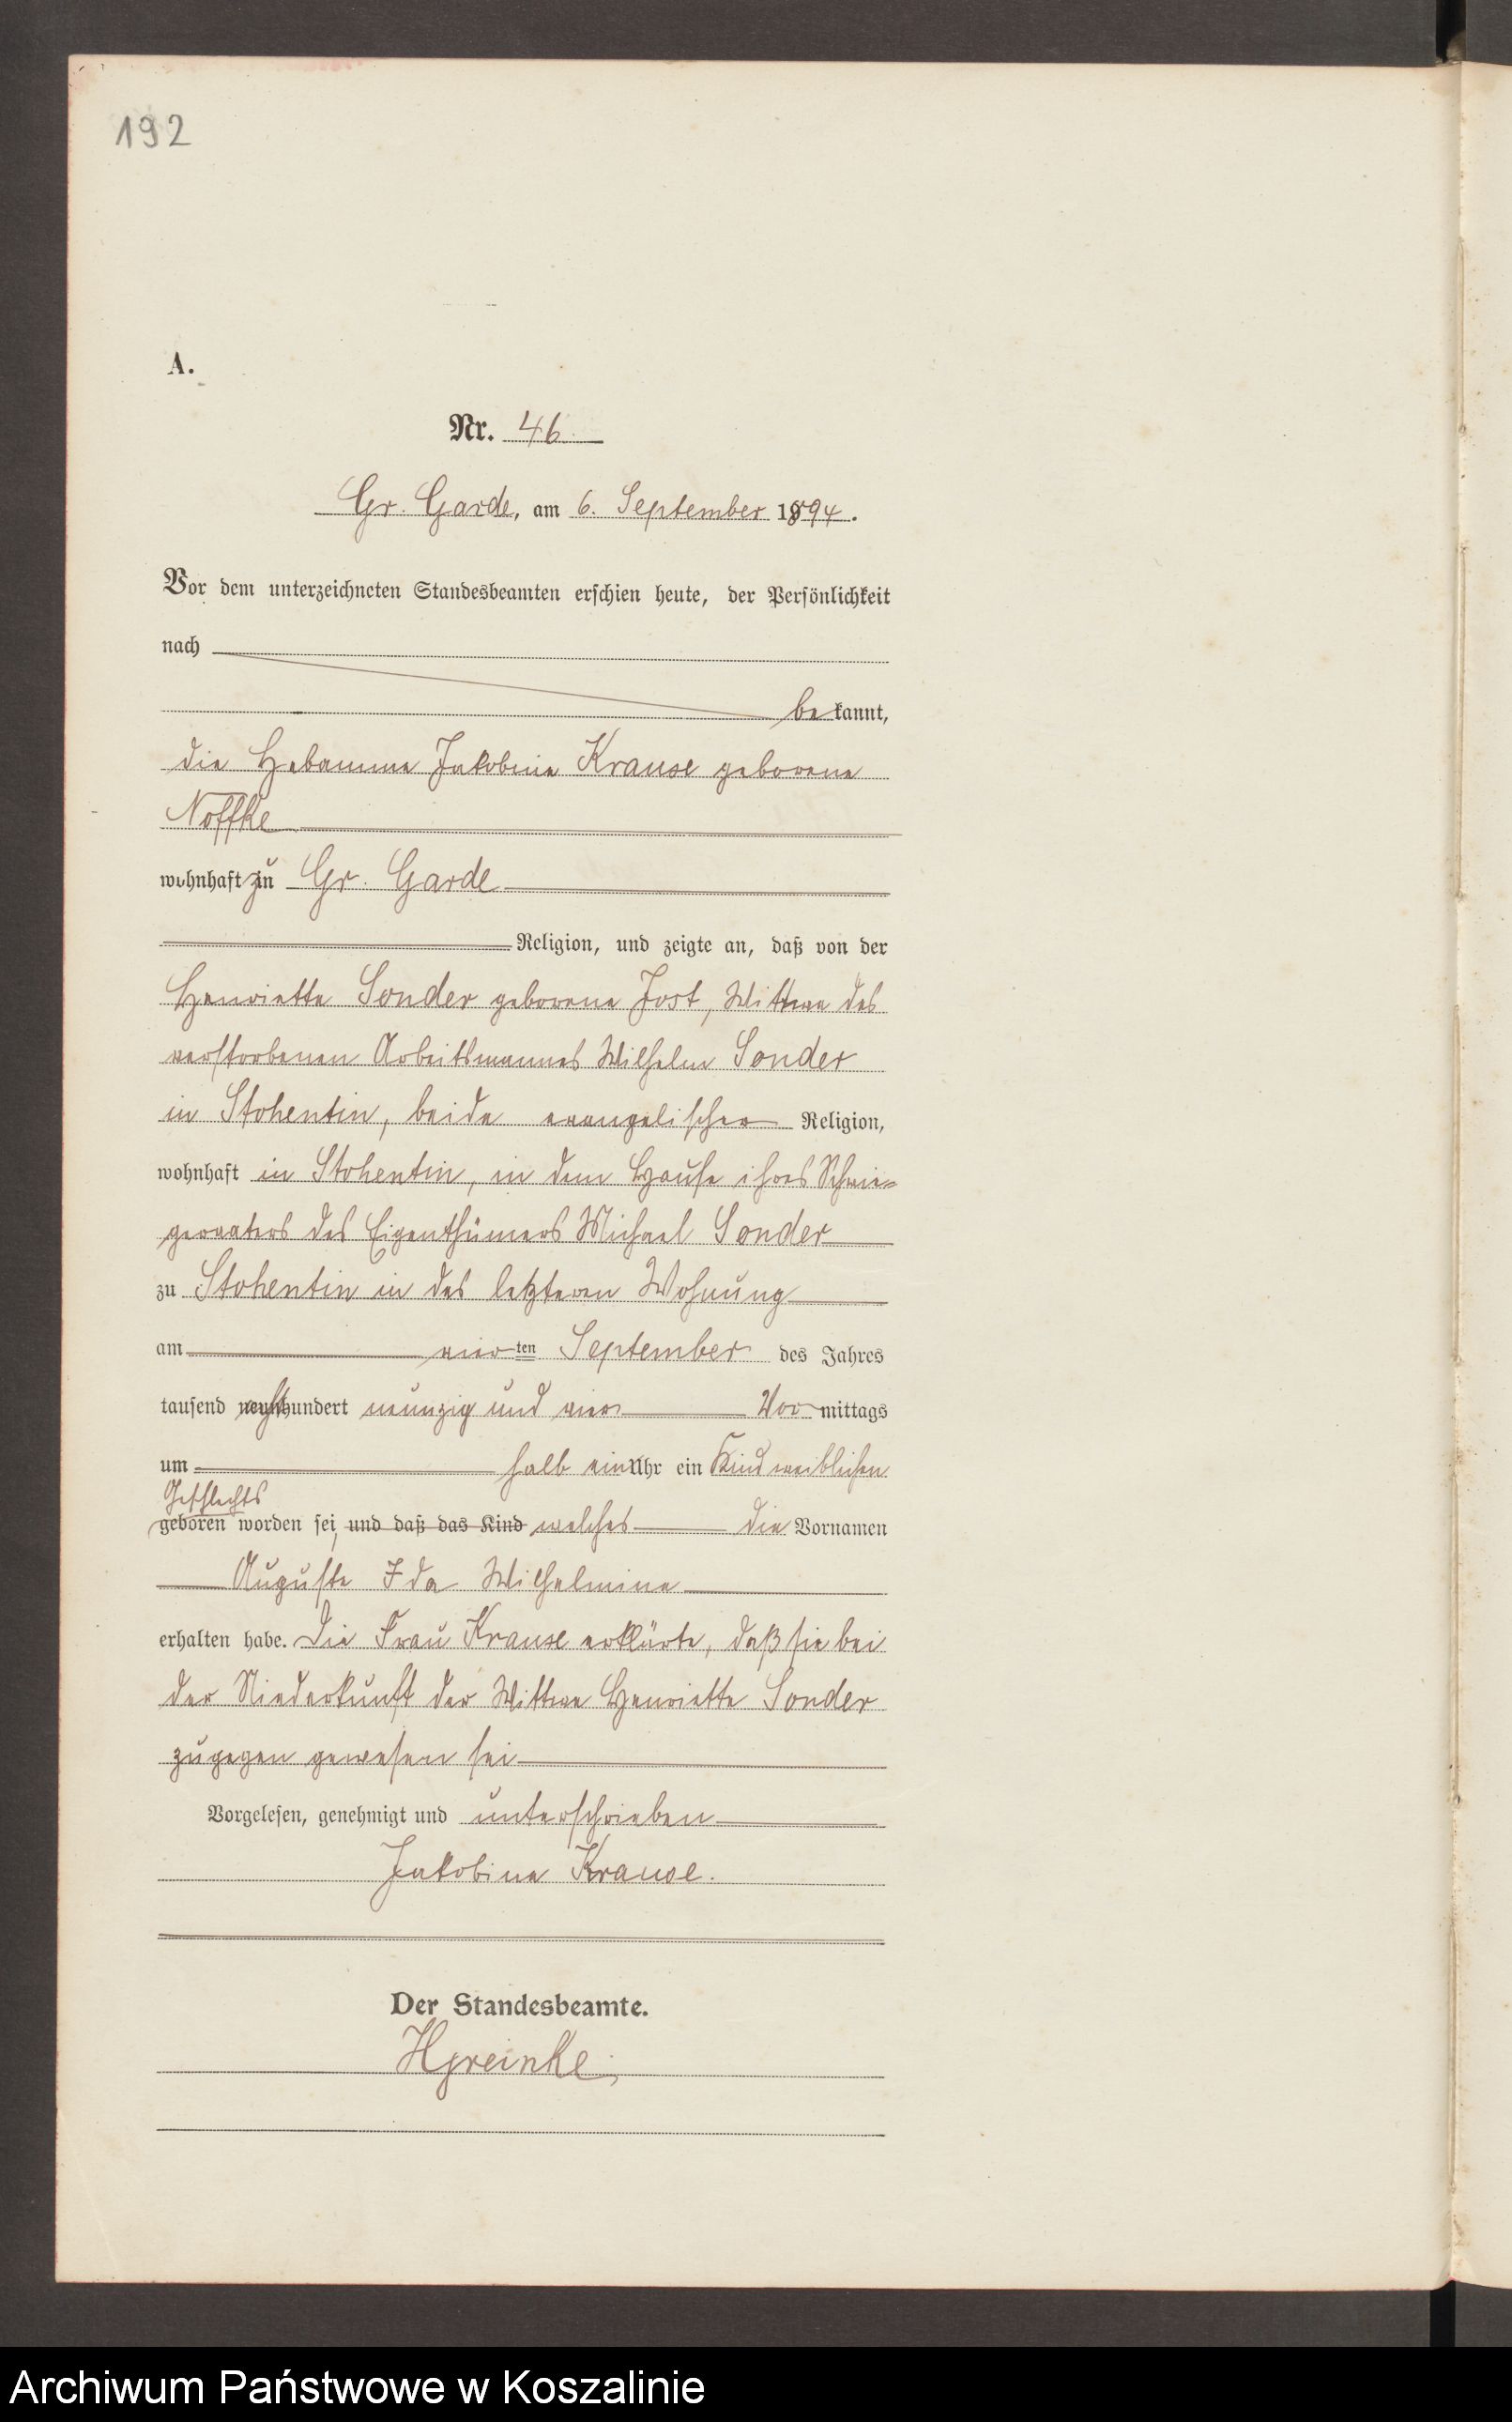 192
A.
Nr. 46
Gr. Garde, am 6. September 1894.
Vor dem unterzeichneten Standesbeamten erschien heute, der Persönlichkeit
nach
bekannt,
die Hebamme Jakobine Krause geborene
Noffke
wohnhaft zu Gr. Garde
Religion, und zeigte an, daß von der
Henriette Sonder geborene Jost, Wittwe des
verstorbenen Arbeitsmannes Wilhelm Sonder
in Stohentin, beide evangelischer Religion,
wohnhaft in Stohentin, in dem Hause ihres Schwie=
gervaters des Eigenthümers Michael Sonder
zu Stohentin in des letzteren Wohnung
am vierten September des Jahres
tausend achthundert neunzig und vier Vormittags
um halb ein Uhr ein Kind weiblichen
Geschlechts
geboren worden sei, und daß das Kind welches die Vornamen
Auguste Ida Wilhelmine
erhalten habe. Die Frau Krause erklärte, daß sie bei
der Niederkunft der Wittwe Henriette Sonder
zugegen gewesen sei
Vorgelesen, genehmigt und unterschrieben
Jakobine Krause.
Der Standesbeamte.
Archiwum Państwowe w Koszalinie